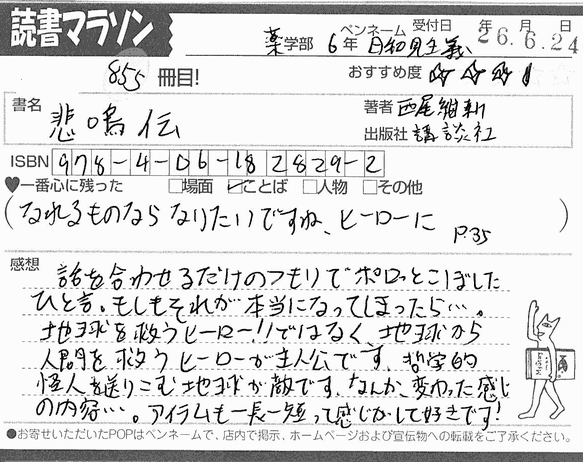 読書マラソン
ペンネーム 受付日 年 月 日
薬学部 6年 日和見主義 26.6.24
855 冊目!
おすすめ度 ☆☆☆
書名 悲鳴伝
著者 西尾維新
出版社 講談社
ISBN 978-4-06-182829-2
♥一番心に残った □場面 ☑ことば □人物 □その他
(なれるものならなりたいですね、ヒーローに P.35)
感想
話を合わせるだけのつもりでポロッとこぼした
ひと言。もしもそれが本当になってしまったら…。
地球を救うヒーロー!!ではなく、地球から
人間を救うヒーローが主人公です。哲学的
怪人を送りこむ地球が敵です。なんか、変わった感じ
の内容…。アイテムも一長一短って感じがして好きです!
●お寄せいただいたPOPはペンネームで、店内で掲示、ホームページおよび宣伝物への転載をご了承ください。